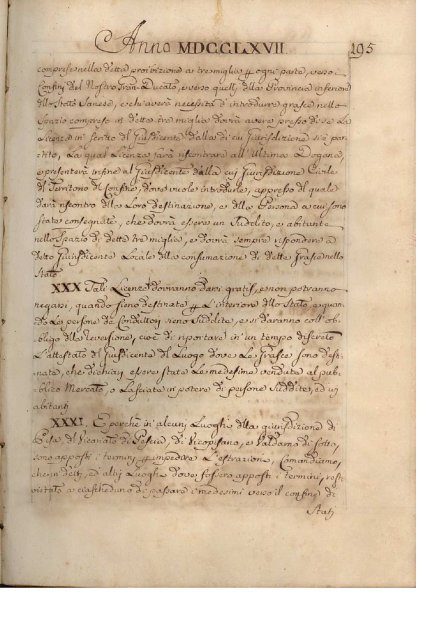 Anno MDCCLXVII. 195
comprese nella detta proibizione a tre miglia ꝑ ogni parte, verso i
Confini del Nostro Gran-Ducato, e verso quelli della Provincia inferiore
dello Stato Sanese, e chi averà necessità d'introdurre grasce nello
spazio compreso in dette tre miglia dovrà avere presso di se la
Licenza in scritto del Giusdicente dalla di cui Giurisdizione si è par-
tito, La qual Licenza farà riscontrare all'ultima Dogana,
e presenterà infine al Giusdicente della cui Giurisdizione Civile
il Territorio di Confine, dove vuole introdurle, appresso il quale
darà riscontro della Loro destinazione, e della Persona a cui sono
state consegnate, che dovrà essere un Suddito, e abitante
nello Spazio di dette tre miglia, e dovrà sempre rispondere a
detto Giusdicente Locale della consumazione di dette Grasce nello
Stato
XXX Tali Licenze dovranno darsi gratis, e non potranno
negarsi, quando sieno destinate ꝑ L'interiore dello Stato, e quan-
do Le persone de Conduttori sieno Suddite, e si daranno coll'ob-
bligo della reversione, cioè di riportare in un tempo discreto
L'attestato del Giusdicente del Luogo dove Le Grasce sono desti-
nate, che dichiari essere state Le medesime vendute al pub-
blico Mercato, o Lasciate in potere di persone Suddite, ed ivi
abitanti
XXXI. E perchè in alcuni Luoghi della giurisdizione di
Pisa del Vicariato di Pescia, di Vicopisano, e Valdarno di sotto,
sono apposti i termini ꝑ impedire L'estrazione, Comandiamo,
che in detti, ed altri Luoghi dove fossero apposti i termini, resti
vietato a ciascheduno di passare i medesimi verso il confine di
Stati